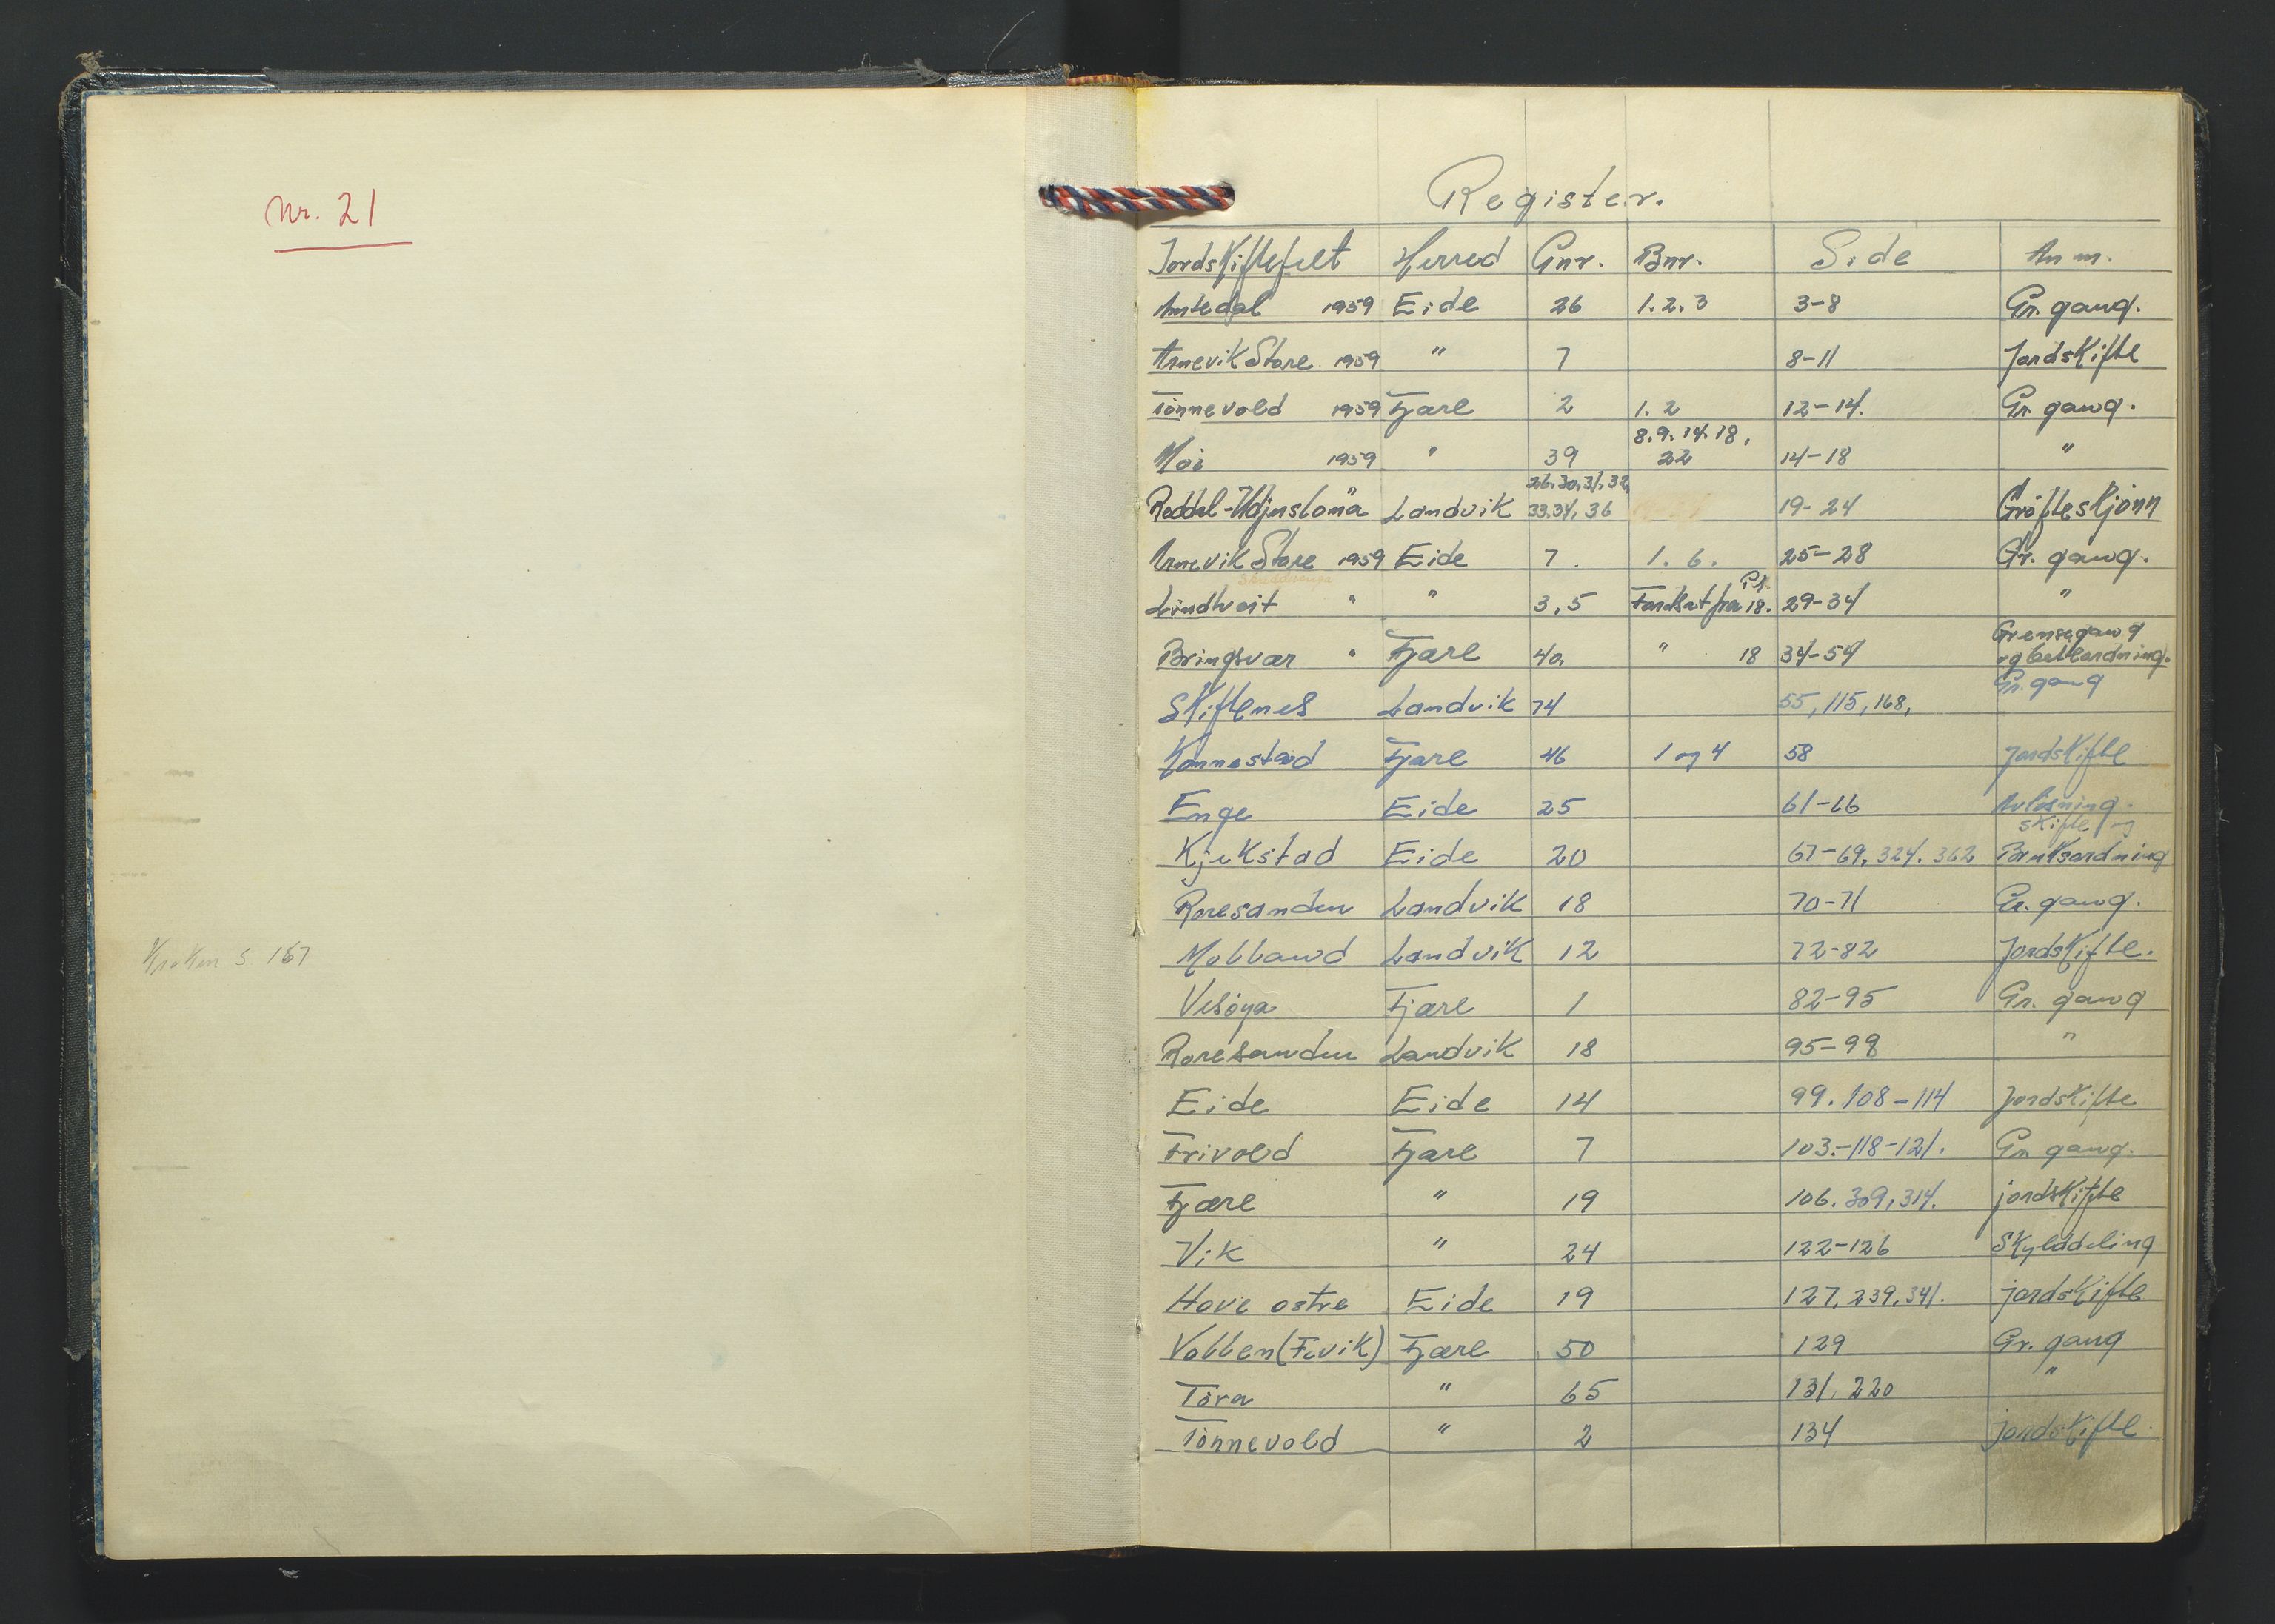 Nr. 21
Kroken s 167
Register.
Jordskiftefelt Herred Gnr. Bnr. Side Anm.
Amtedal 1959 Eide 26 1. 2. 3 3-8 Gr. gang.
Arnevik Store 1959 " 7 8-11 Jordskifte
Tønnevold 1959 Fjære 2 1. 2 12-14. Gr. gang.
8. 9. 14. 18,
Moi 1959 " 39 22 14-18 "
26. 30, 31. 32,
Reddal - Landvik 33. 34, 36 19-24 Grøfteskjønn
Arnevik Store 1959 Eide 7. 1. 6. 25-28 Gr. gang.
Lindtveit " " 3, 5 18. 29-34 "
Grensegang
Bringsvær " Fjære 40, " 18 34-54 og
Gr. gang
Skiftenes Landvik 74 55, 115, 168,
Kannestad Fjære 46 1 og 4 58 Jordskifte
Enge Eide 25 61-66 Avløsning.
skifte og
Kjekstad Eide 20 67-69, 324. 362 Bruksordning
Roresanden Landvik 18 70-71 Gr. gang.
Molland Landvik 12 72-82 Jordskifte.
Vesøya Fjære 1 82-95 Gr. gang
Roresanden Landvik 18 95-98 "
Eide Eide 14 99. 108-114 Jordskifte
Frivold Fjære 7 103.-118-121. Gr. gang.
Fjære " 19 106. 309, 314. jordskifte
Vik " 24 122-126 Skylddeling
Hove østre Eide 19 127, 239, 341. jordskifte
Vollen (Fevik) Fjære 50 129 Gr. gang
Tøra " 65 131, 220 "
Tønnevold " 2 134 jordskifte.